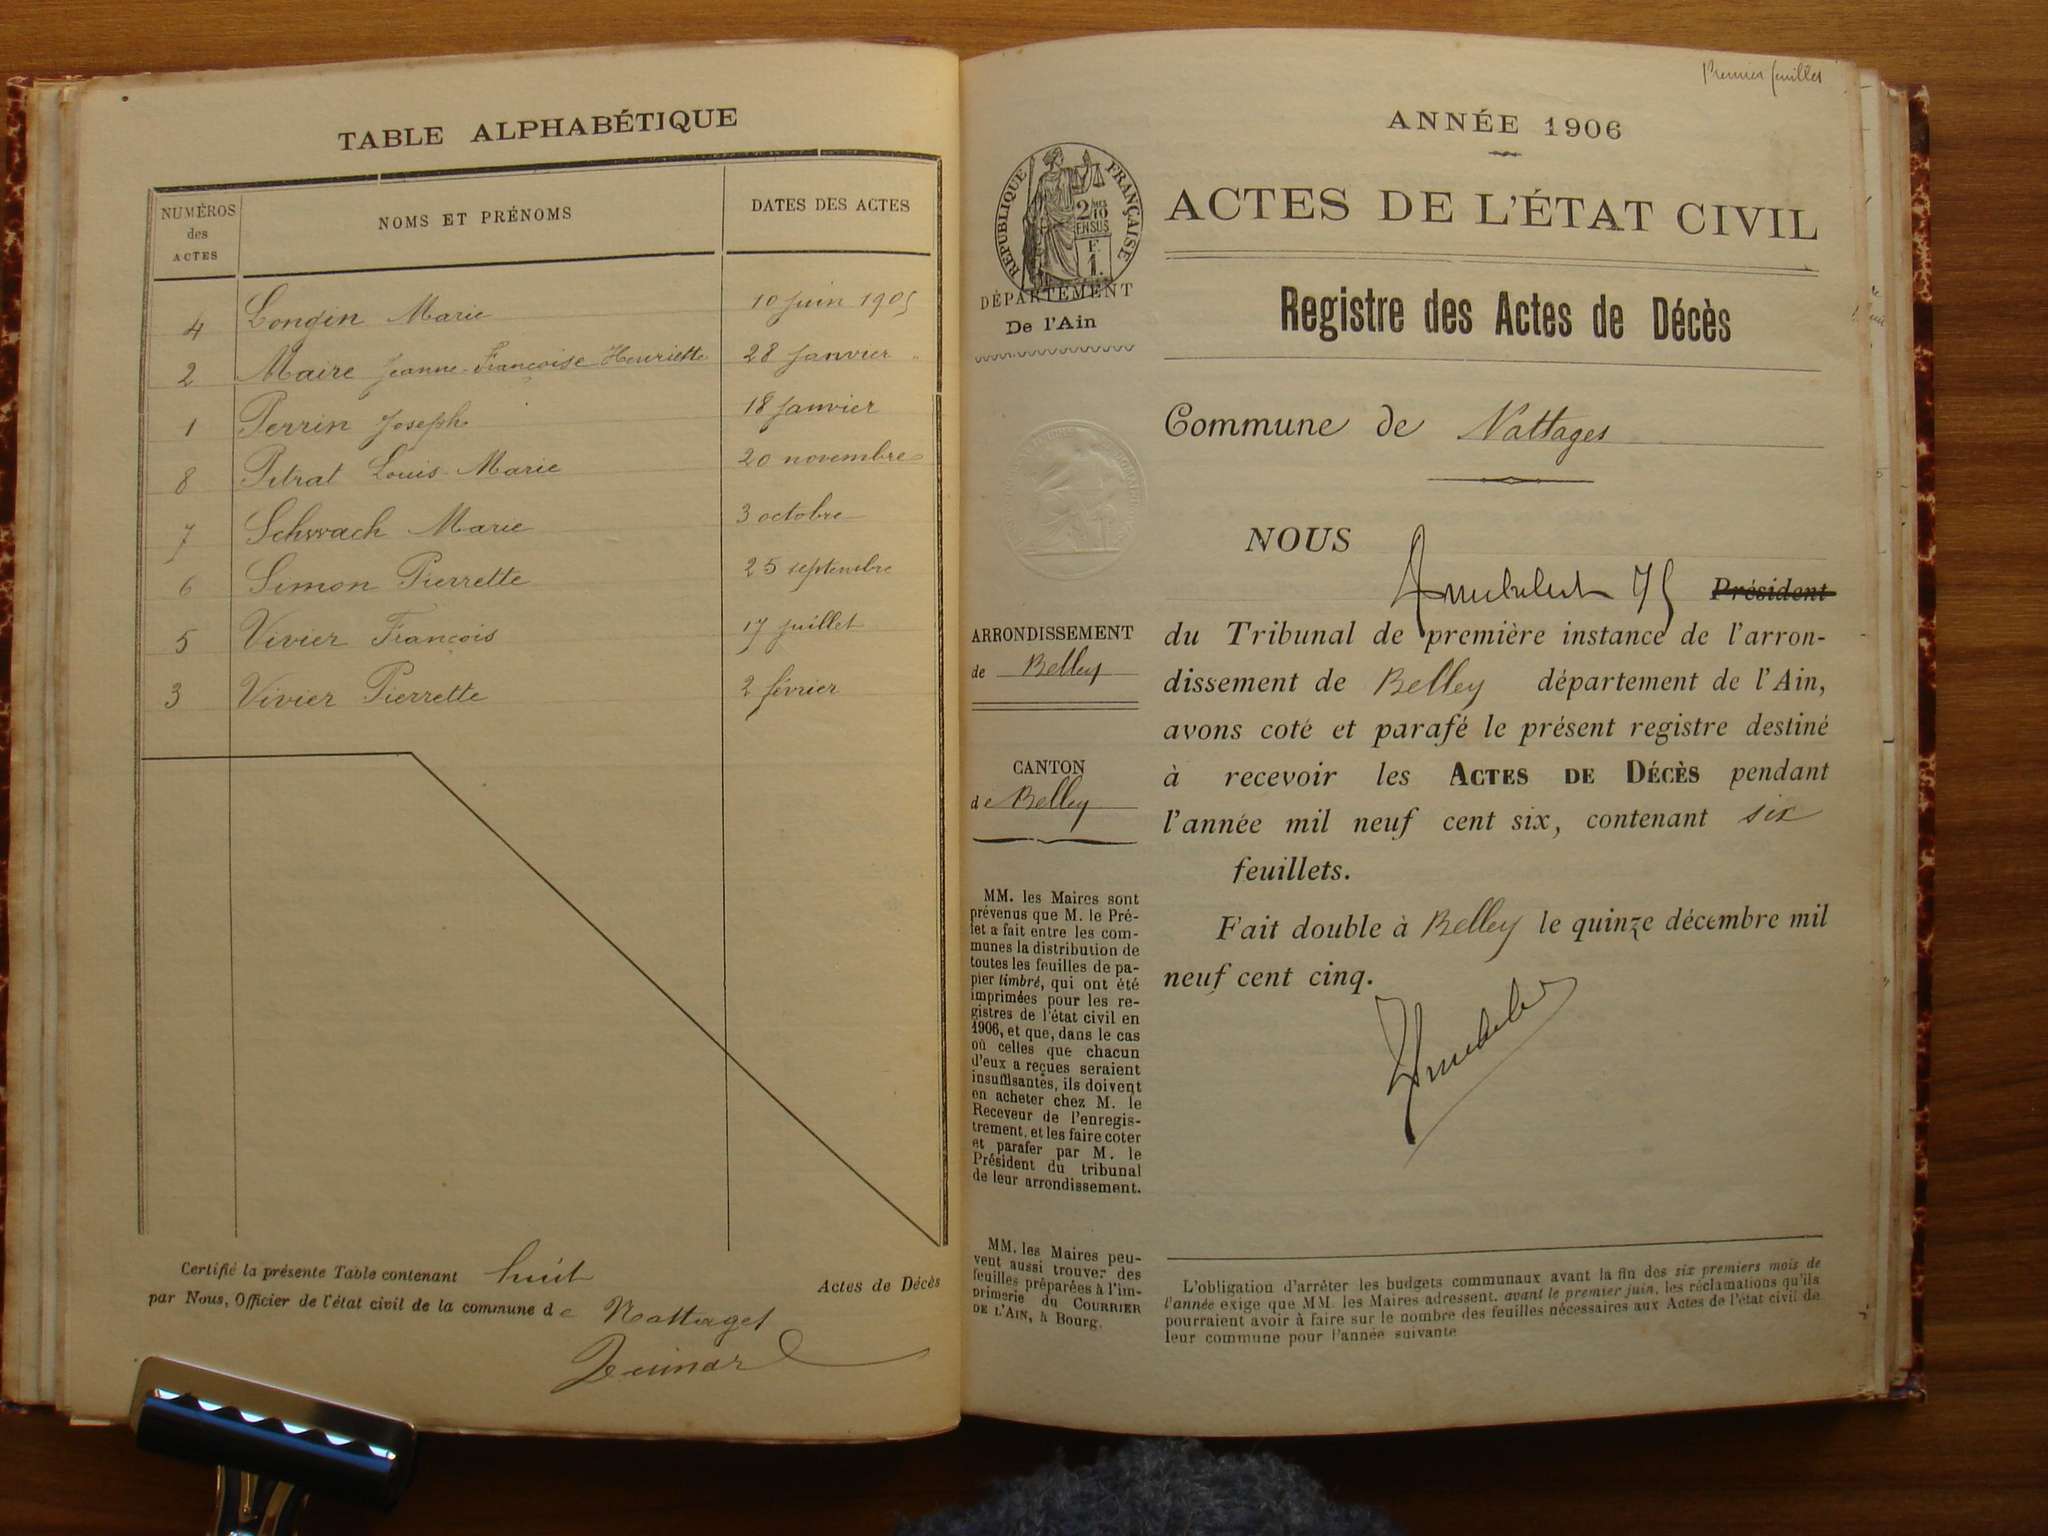 TABLE ALPHABÉTIQUE
NUMÉROS des ACTES NOMS ET PRÉNOMS DATES DES ACTES
4 Longin Marie 10 juin 1905
2 Maire Jeanne-Françoise-Henriette 28 janvier "
1 Perrin Joseph 18 janvier
8 Pitrat Louis Marie 20 novembre
7 Schwach Marie 3 octobre
6 Simon Pierrette 25 septembre
5 Vivier François 17 juillet
3 Vivier Pierrette 2 février
Certifié la présente Table contenant huit Actes de Décès
par Nous, Officier de l'état civil de la commune de Nattages
Premier feuillet
ANNÉE 1906
RÉPUBLIQUE FRANÇAISE
2/10 EN SUS
F. 1.
ACTES DE L'ÉTAT CIVIL
DÉPARTEMENT
De l'Ain
Registre des Actes de Décès
Commune de Nattages
NOUS
Président
du Tribunal de première instance de l'arron-
dissement de Belley département de l'Ain,
avons coté et parafé le présent registre destiné
à recevoir les ACTES DE DÉCÈS pendant
l'année mil neuf cent six, contenant six
feuillets.
Fait double à Belley le quinze décembre mil
neuf cent cinq.
ARRONDISSEMENT
de Belley
CANTON
de Belley
MM. les Maires sont
prévenus que M. le Pré-
fet a fait entre les com-
munes la distribution de
toutes les feuilles de pa-
pier timbré, qui ont été
imprimées pour les re-
gistres de l'état civil en
1906, et que, dans le cas
où celles que chacun
d'eux a reçues seraient
insuffisantes, ils doivent
en acheter chez M. le
Receveur de l'enregis-
trement, et les faire coter
et parafer par M. le
Président du tribunal
de leur arrondissement.
MM. les Maires peu-
vent aussi trouver des
feuilles préparées à l'im-
primerie du COURRIER
DE L'AIN, à Bourg.
L'obligation d'arrêter les budgets communaux avant la fin des six premiers mois de
l'année exige que MM. les Maires adressent, avant le premier juin, les réclamations qu'ils
pourraient avoir à faire sur le nombre des feuilles nécessaires aux Actes de l'état civil de
leur commune pour l'année suivante